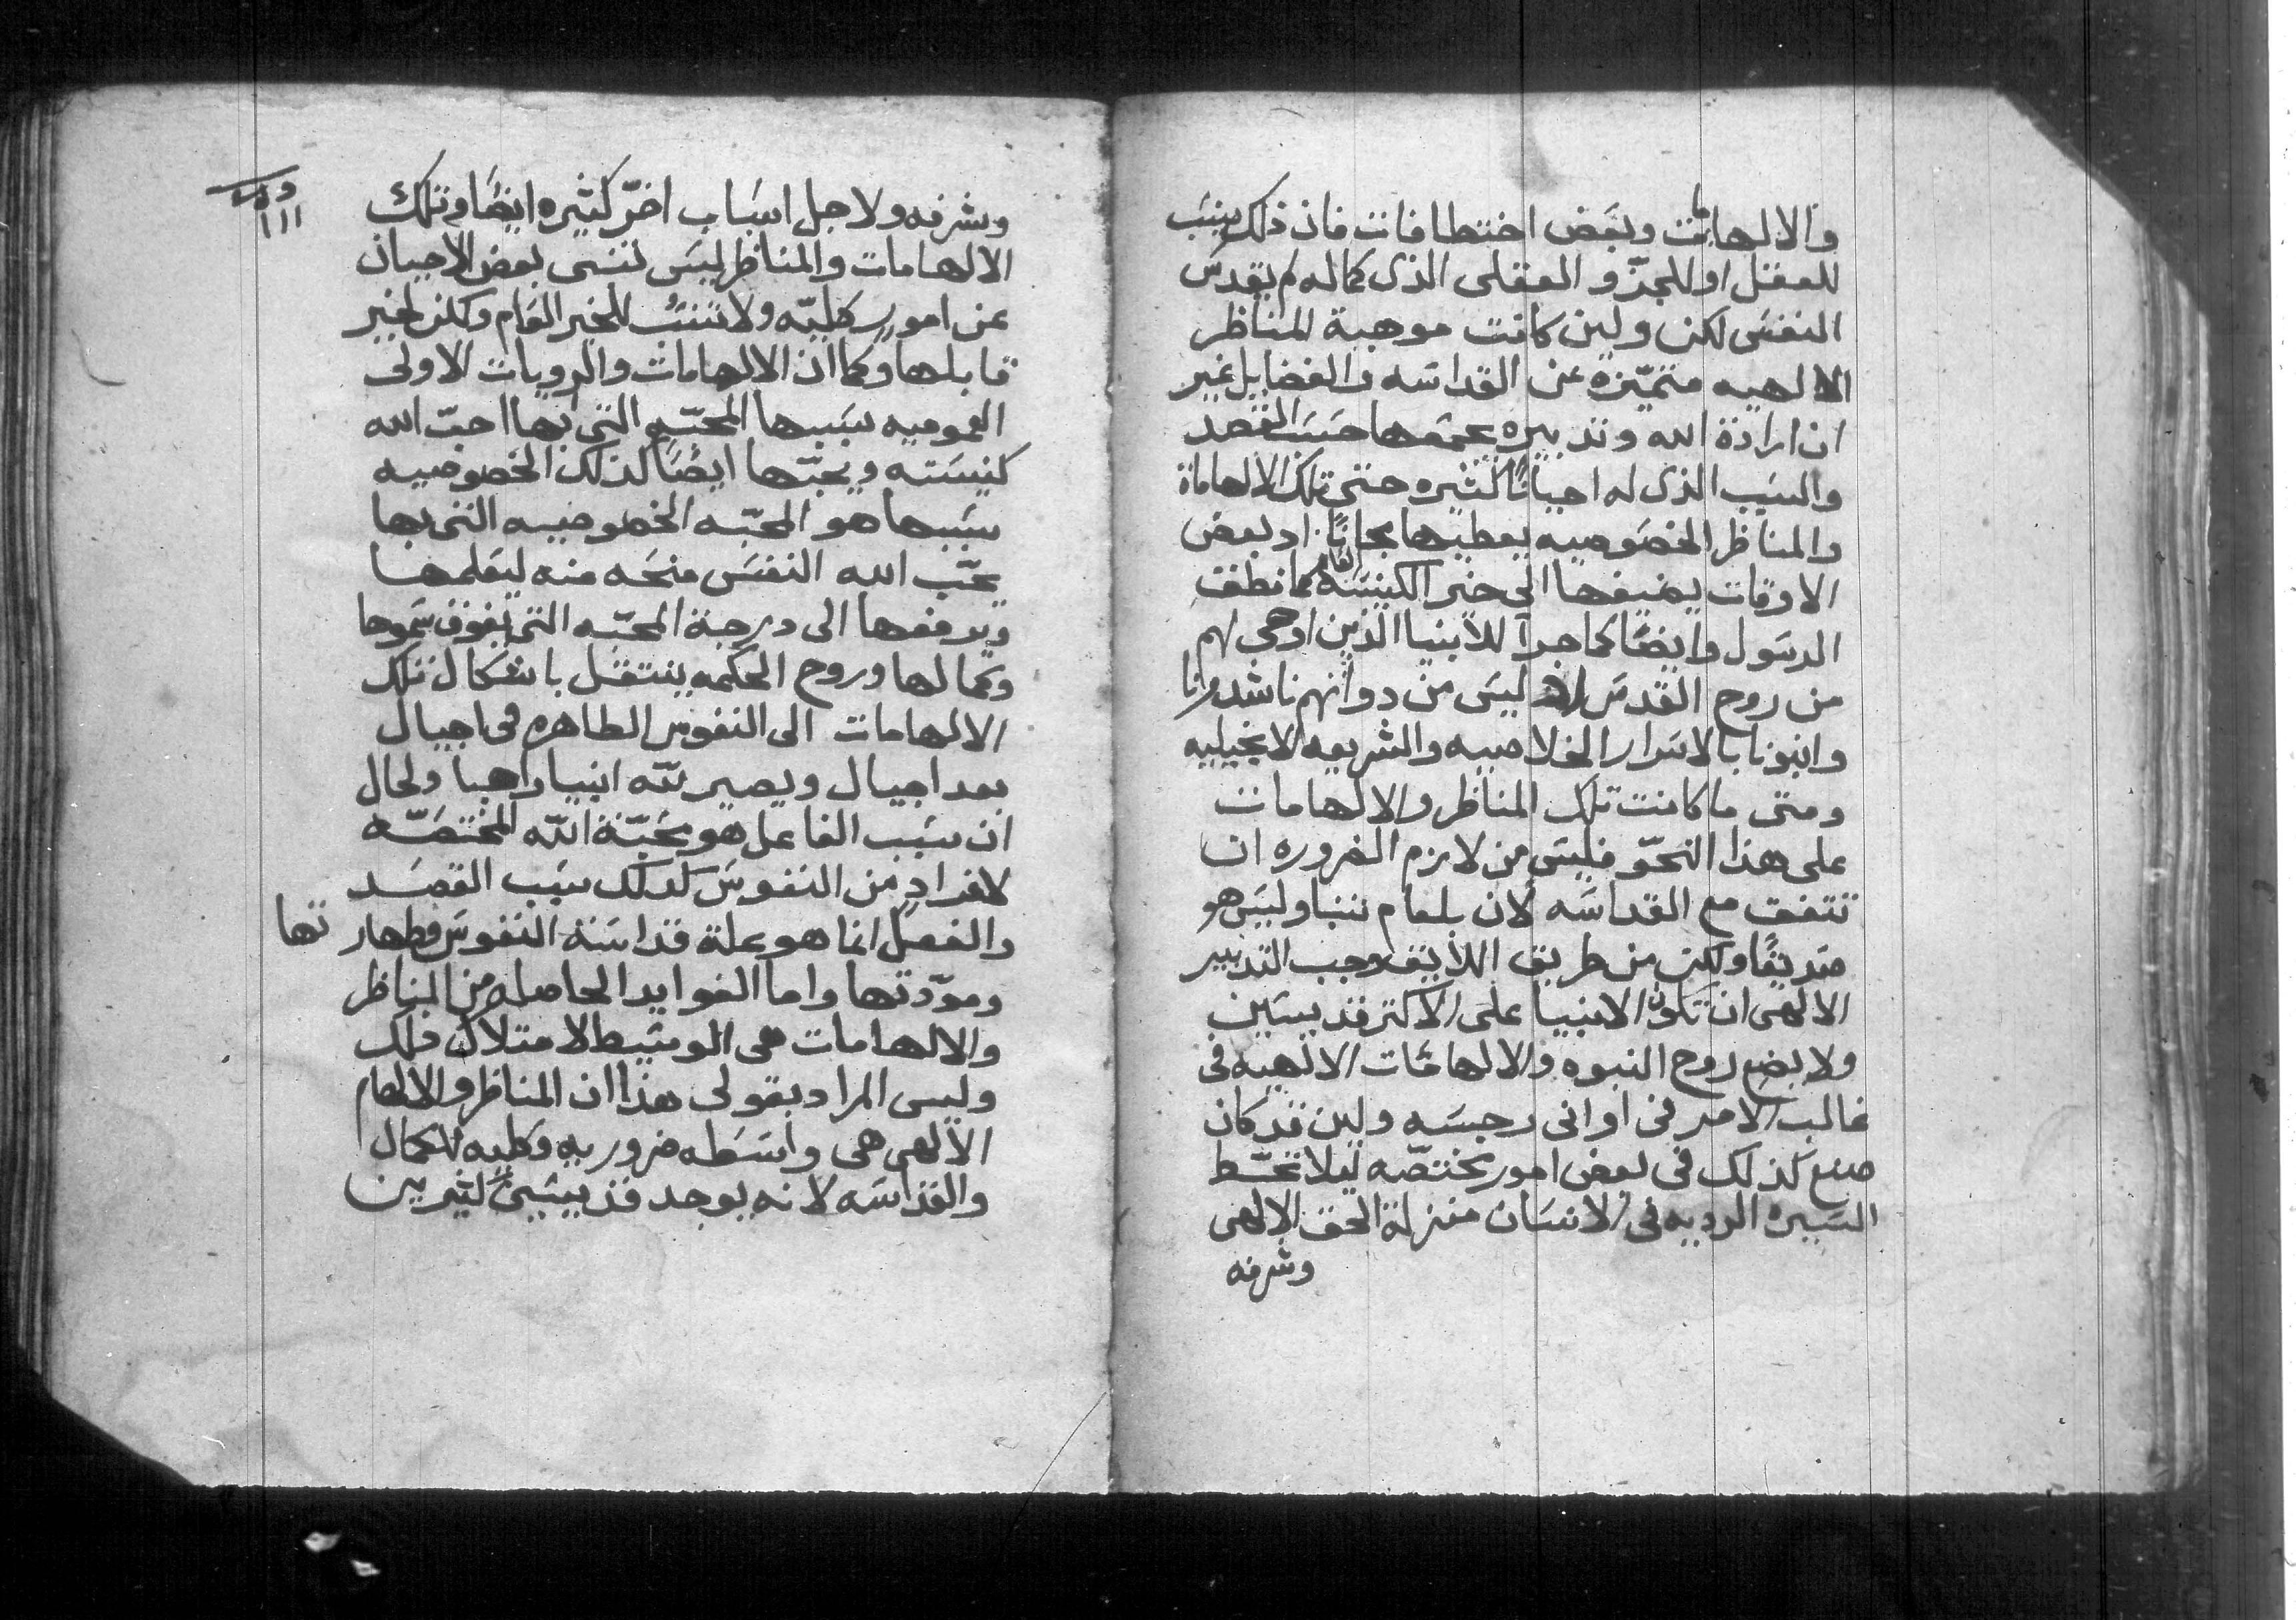 والالهامات وبعض اختطافات فان ذلك ينسب
للعقل او للجزو العقلى الذى كماله لم يقدس
النفس لكن ولين كانت موهبة المناظر
الالهيه متميزه عن القداسه والفضايل غير
ان ارادة الله وتدبيره يجمعها حسب القصد
والسبب الذى له احيانًا كثيره حتى تلك الالهاماة
والمناظر الخصوصيه يعطيها مجانًا اد بعض
الاوقات يضيفها الى خير الكنيسة العام كما نطق
الرسول وايضًا كما جرا للانبيا الذين اوحى لهم
من روح القدس ليس من دواتهم ناشدونا
وانبونا بالاسرار الخلاصيه والشريعه الانجيليه
ومتى ما كانت تلك المناظر والالهامات
على هذا النحو فليس من لازم الضروره ان
تتفق مع القداسه لان بلعام تنبا وليس هو
صديقًا ولكن من طريق اللايق وجب التدبير
الالهى ان تكون الانبيا على الاكتر قديسين
ولا يضع روح النبوه والالهامات الالهيه فى
غالب الامر فى اوانى رجسه ولين قد كان
صنع كذلك فى بعض امور مختصه ليلا تحط
السيره الرديه فى الانسان منزلة الحق الالهى
وشرفه
وشرفه ولاجل اسباب اخر كثيره ايضًا وتلك
الالهامات والمناظر ليس تنسى بعض الاحيان
عن امور كليه ولا تنسب للخير العام ولكن لخير
قابلها وكما ان الالهامات والرويات الاولى
العموميه سببها المحبه التى بها احب الله
كنيسته ويحبها ايضًا كذلك الخصوصيه
سببها هو المحبه الخصوصيه التى بها
يحب الله النفس منحه منه ليعلمها
ويرفعها الى درجة المحبه التى يفوق سموها
وكمالها وروح الحكمه ينتقل باشكال تلك
الالهامات الى النفوس الطاهره فى اجيال
بعد اجيال ويصير لله انبيا واهبا ولحال
ان سبب الفاعل هو محبة الله المختصه
لافراد من النفوس كدلك سبب القصد
والفصل انما هو علة قداسة النفوس وطهارتها
ومودتها واما الفوايد الحاصله من المناظر
والالهامات هى الوسيط لامتلاك ذلك
وليس المراد بقولى هذا ان المناظر والالهام
الالهى هى واسطه ضروريه وكليه للكمال
والقداسه لانه يوجد قديسين كثيرين